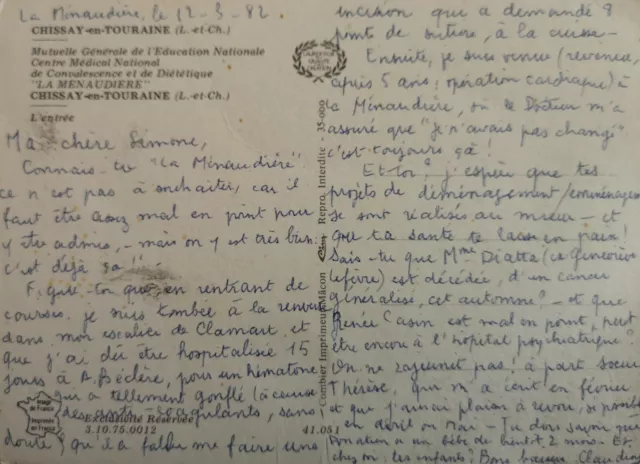 La Ménaudière, le 12-3-82.
CHISSAY-en-TOURAINE (L.-et-Ch.)
Mutuelle Générale de l'Education Nationale
Centre Médical National
de Convalescence et de Diététique
"LA MENAUDIERE"
CHISSAY-en-TOURAINE (L.-et-Ch.)
L'entrée
Ma chère Simone,
Connais-tu "La Ménaudière"
ce n'est pas à souhaiter, car il
faut être assez mal en point pour
y être admise, - mais on y est très bien
c'est déjà ça !!
Figure-toi qu'en rentrant de
courses, je suis tombée à la renverse
dans mon escalier de Clamart, et
que j'ai dû être hospitalisée 15
jours à A. Béclère, pour un hématome
qui a tellement gonflé (à cause
des anti-coagulants, sans
doute) qu'il a fallu me faire une
Image de France
Imprimé en France
Exclusivité Réservée
3.10.75.0012
41.051
Combier Imprimeur Mâcon
Cim
Repro. Interdite
35-000
incision qui a demandé 8
points de suture, à la cuisse -
Ensuite, je suis venue (revenue,
après 5 ans : opération cardiaque) à
la Ménaudière, où le Docteur m'a
assuré que "je n'avais pas changé"
c'est toujours ça !
Et toi ? j'espère que tes
projets de déménagement/emménagement
se sont réalisés au mieux - et
que ta santé te laisse en paix !
Sais-tu que Mme Diatta (ce Geneviève
Lefèvre) est décédée, d'un cancer
généralisé, cet automne ? - et que
Renée Casin est mal en point, peut
être encore à l'hôpital psychiatrique !
On ne rajeunit pas ! à part Sœur
Thérèse, qui m'a écrit en février
et que j'aurai plaisir à revoir, si possible
en avril ou Mai - Tu dois savoir que
Donation a un bébé de bientôt 2 mois - Et
chez toi : les enfants ? Bons baisers Claudine